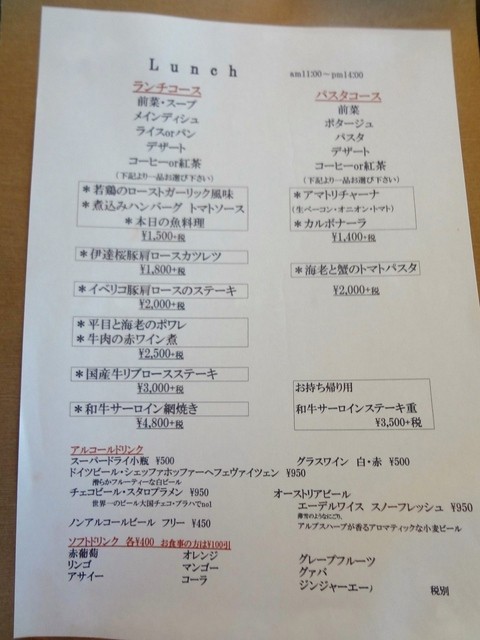 Lunch
am11:00~pm14:00
ランチコース
前菜・スープ
メインディシュ
ライスorパン
デザート
コーヒーor紅茶
(下記より一品お選び下さい)
＊若鶏のローストガーリック風味
＊煮込みハンバーグ トマトソース
＊本日の魚料理
¥1,500+税
＊伊達桜豚肩ロースカツレツ
¥1,800+税
＊イベリコ豚肩ロースのステーキ
¥2,000+税
＊平目と海老のポワレ
＊牛肉の赤ワイン煮
¥2,500+税
＊国産牛リブロースステーキ
¥3,000+税
＊和牛サーロイン網焼き
¥4,800+税
パスタコース
前菜
ポタージュ
パスタ
デザート
コーヒーor紅茶
(下記より一品お選び下さい)
＊アマトリチャーナ
(生ベーコン・オニオン・トマト)
＊カルボナーラ
¥1,400+税
＊海老と蟹のトマトパスタ
¥2,000+税
お持ち帰り用
和牛サーロインステーキ重
¥3,500+税
アルコールドリンク
スーパードライ小瓶 ¥500
グラスワイン 白・赤 ¥500
ドイツビール・シェッファホッファーヘフェヴァイツェン ¥950
滑らかフルーティーな白ビール
チェコビール・スタロプラメン ¥950
世界一のビール大国チェコ・プラハでno1
オーストリアビール
エーデルワイス スノーフレッシュ ¥950
薄雪のようなにごり、
アルプスハーブが香るアロマティックな小麦ビール
ノンアルコールビール フリー ¥450
ソフトドリンク 各¥400 お食事の方は¥100引
赤葡萄 オレンジ グレープフルーツ
リンゴ マンゴー グァバ
アサイー コーラ ジンジャーエー
税別